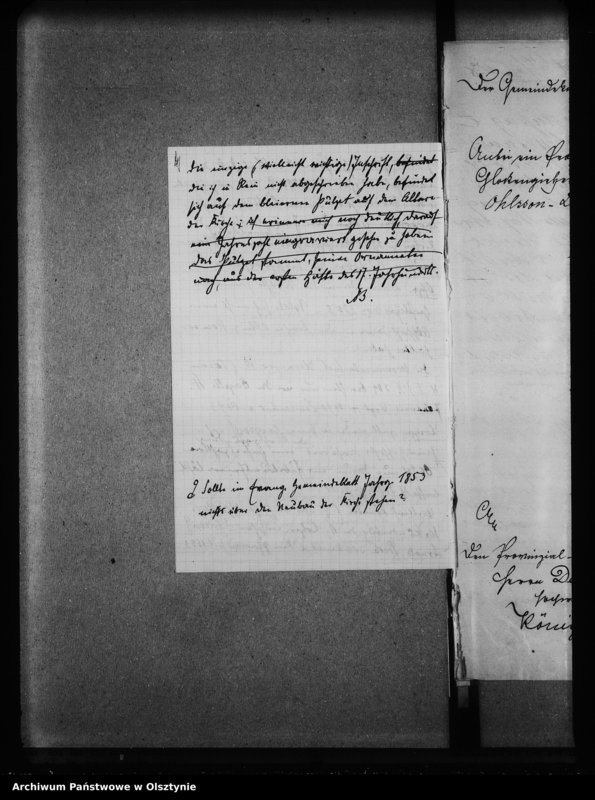 4)
die einzige (vielleicht wichtige) Inschrift, befindet
die ich u Klein nicht abgeschrieben habe, befindet
sich auf dem kleineren Pulpet auf dem Altare
der Kirche; ich erinnere mich noch deutlich darauf
eine Jahreszahl eingraviert gesehn zu haben
das Pulpet stammt, seinen Ornamenten
nach, aus der ersten Hälfte des 17. Jahrhunderts.
NB.
? Sollte im Evang. Gemeindeblatt Jahrg. 1853
nichts über den Neubau der Kirche stehen?
Der Gemeindeki
Anbei ein Pro
Glockengießer
Ohlsson-L
An
den Provinzial-
Herrn D
König
Archiwum Państwowe w Olsztynie